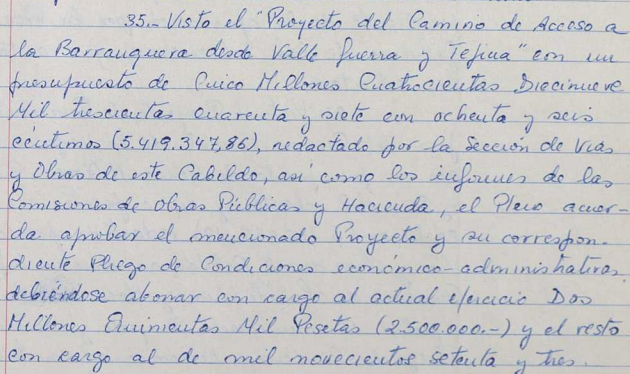 35.- Visto el "Proyecto del Camino de Acceso a
la Barranquera desde Valle Guerra y Tejina" con un
presupuesto de Cinco Millones Cuatrocientas Diecinueve
Mil trescientas cuarenta y siete con ochenta y seis
céntimos (5.419.347,86), redactado por la Sección de Vias
y Obras de este Cabildo, así como los informes de las
Comisiones de Obras Públicas y Hacienda, el Pleno acuer-
da aprobar el mencionado Proyecto y su correspon-
diente Pliego de Condiciones económico-administrativas,
debiéndose abonar con cargo al actual ejercicio Dos
Millones Quinientas Mil Pesetas (2.500.000.-) y el resto
con cargo al de mil novecientos setenta y tres.